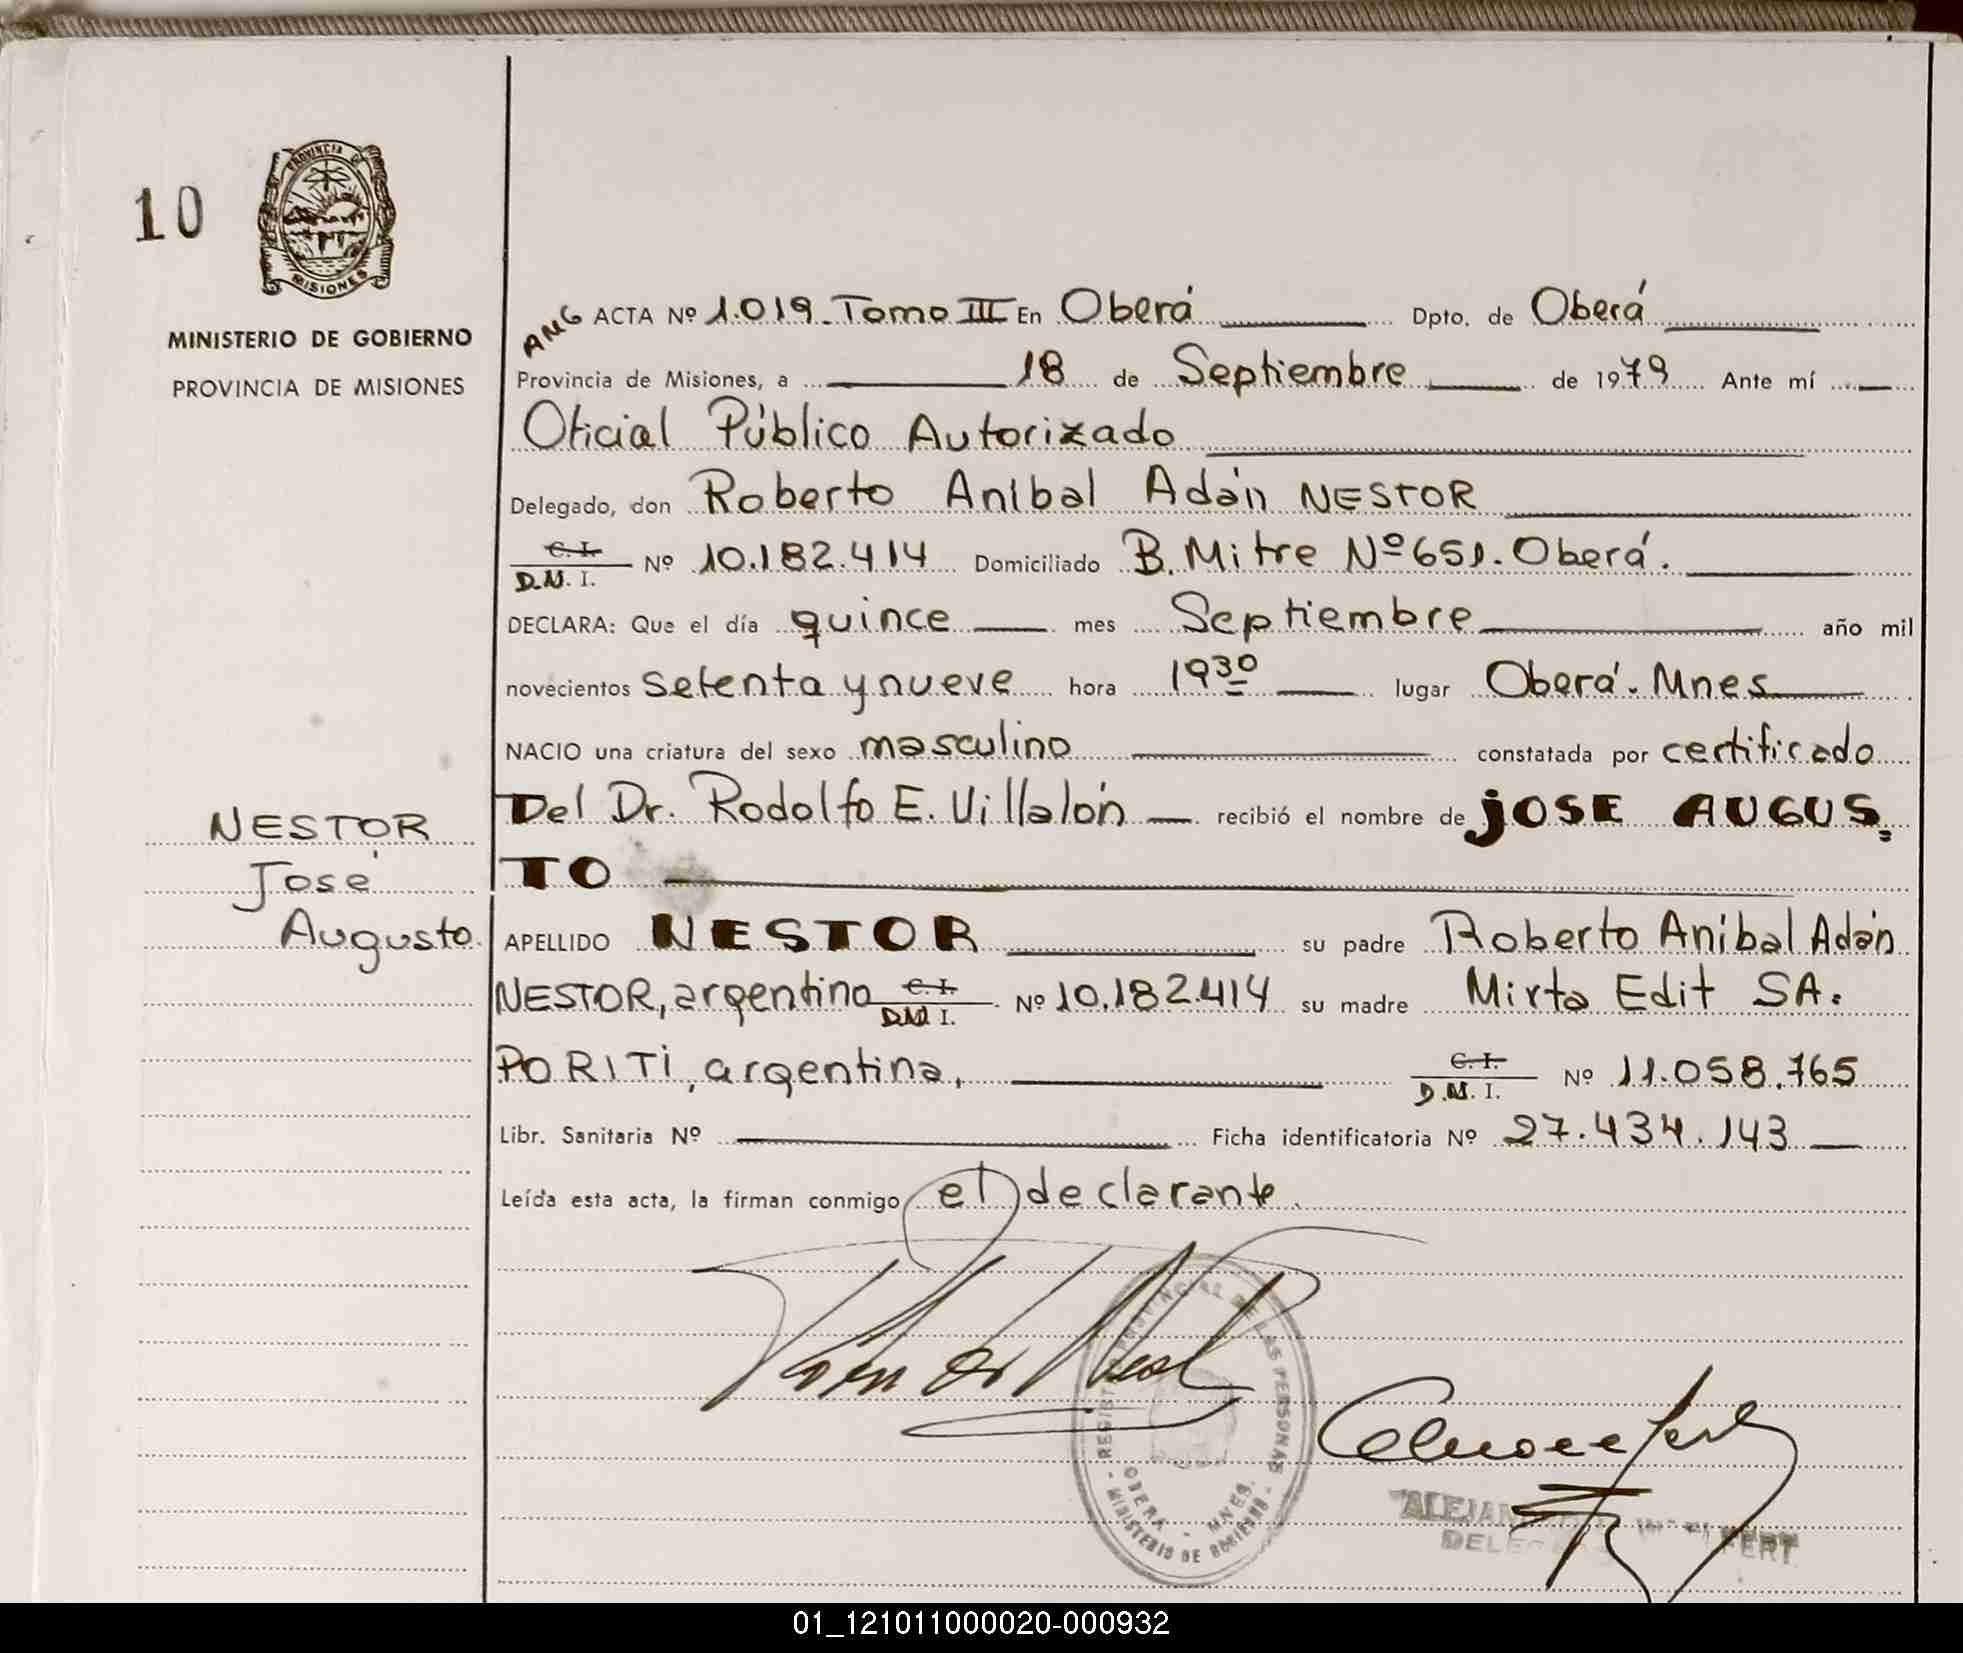 10
PROVINCIA DE
MISIONES
MINISTERIO DE GOBIERNO
PROVINCIA DE MISIONES
AMG ACTA Nº 1.019. Tomo III En Oberá Dpto. de Oberá
Provincia de Misiones, a 18 de Septiembre de 1979 Ante mí
Oficial Público Autorizado
Delegado, don Roberto Aníbal Adán NESTOR
C. I.
D.N. I. Nº 10.182.414 Domiciliado B. Mitre Nº 651. Oberá.
DECLARA: Que el día quince mes Septiembre año mil
novecientos setenta y nueve hora 19 30 lugar Oberá. Mnes
NACIO una criatura del sexo masculino constatada por certificado
Del Dr. Rodolfo E. Villalón recibió el nombre de JOSE AUGUS=
TO
NESTOR
José
Augusto
APELLIDO NESTOR su padre Roberto Aníbal Adán
NESTOR, argentino C. I. D.N. I. Nº 10.182.414 su madre Mirta Edit SA=
PORITI, argentina, C. I. D.N. I. Nº 11.058.765
Libr. Sanitaria Nº Ficha identificatoria Nº 27.434.143
Leída esta acta, la firman conmigo el declarante.
REGISTRO PROVINCIAL DE LAS PERSONAS
OBERA - MNES.
- MINISTERIO DE GOBIERNO -
01_121011000020-000932